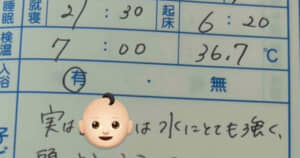 睡眠 就寝 21:30 起床 6:20
検温 7:00 36.7℃
入浴 有・無
実は は水にとても強く、